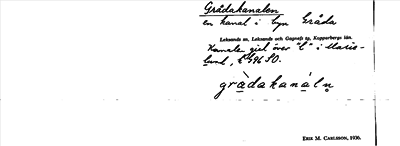 Grådakanalen
en kanal i byn Gråda
Leksands sn, Leksands och Gagnefs tg, Kopparbergs län.
Kanalen gick över "l" i
grådakanáln̥
ERIK M. CARLSSON, 1930.